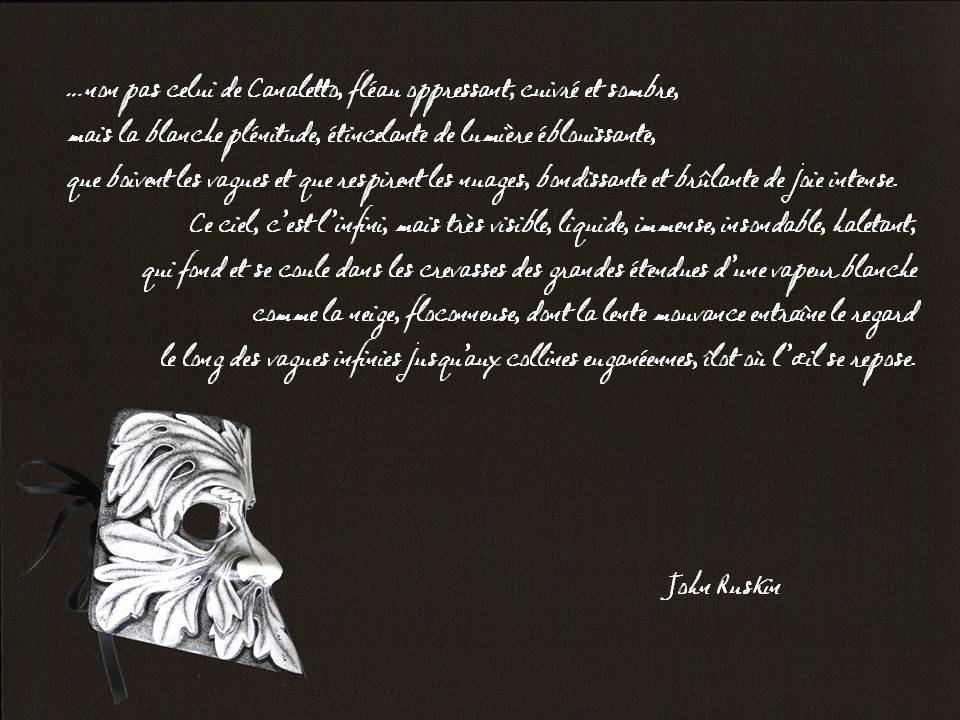 ...non pas celui de Canaletto, fléau oppressant, cuivré et sombre,
mais la blanche plénitude, étincelante de lumière éblouissante,
que boivent les vagues et que respirent les nuages, bondissante et brûlante de joie intense.
Ce ciel, c'est l'infini, mais très visible, liquide, immense, insondable, haletant,
qui fond et se coule dans les crevasses des grandes étendues d'une vapeur blanche
comme la neige, floconneuse, dont la lente mouvance entraîne le regard
le long des vagues infinies jusqu'aux collines euganéennes, îlot où l'œil se repose.
John Ruskin